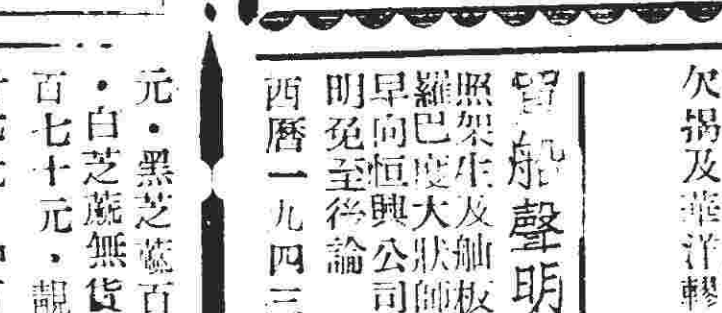 欠揭及華洋轇
買船聲明
照架生及舢板
羅巴度大狀師
早向恒興公司
明免至後論
西曆一九四三
元・黑芝蔴百
・白芝蔴無貨
百七十元・靚